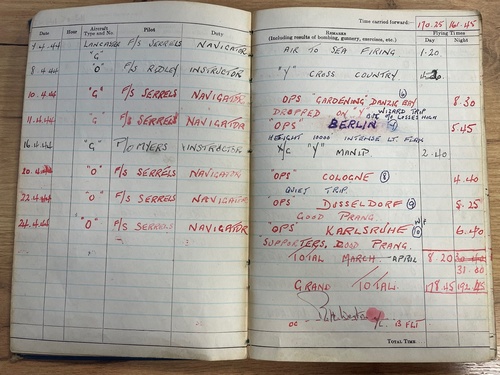 Time carried forward:— 170.25 161.45
Date Hour Aircraft Type and No. Pilot Duty Remarks (Including results of bombing, gunnery, exercises, etc.) Flying Times Day Night
4.4.44 LANCASTER "G" F/S SERRELS NAVIGATOR AIR TO SEA FIRING 1.20
8.4.44 "O" F/S INSTRUCTOR "Y" CROSS COUNTRY
10.4.44 "G" F/S SERRELS NAVIGATOR "OPS" "GARDENING" DANZIG BAY 8.30
DROPPED ON "Y" WIZARD TRIP
11.4.44 "G" F/S SERRELS NAVIGATOR "OPS" BERLIN 5.45
HEIGHT INTENSE LT. FLAK
16.4.44 "G" F/O MYERS INSTRUCTOR X/C "Y" MANIP 2.40
20.4.44 "O" F/S SERRELS NAVIGATOR "OPS" COLOGNE (8) 4.40
QUIET TRIP.
22.4.44 "O" F/S SERRELS NAVIGATOR "OPS" DUSSELDORF (9) 5.25
GOOD PRANG.
24.4.44 "O" F/S SERRELS NAVIGATOR "OPS" KARLSRUHE (10) 6.40
SUPPORTERS, GOOD PRANG.
TOTAL MARCH APRIL 8.20
31.00
GRAND TOTAL. 178.45 192.45
OC F/L "B" FLT
TOTAL TIME